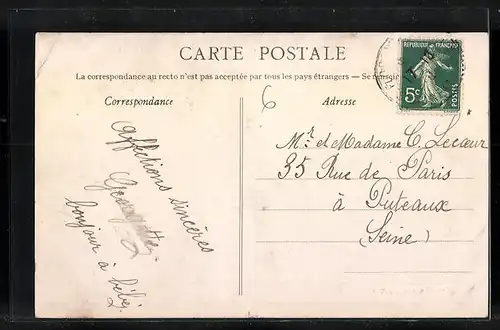 CARTE POSTALE
La correspondance au recto n'est pas acceptée par tous les pays étrangers — Se
Correspondance
Adresse
6
REPUBLIQUE FRANÇAISE
5c
POSTES
Affections sincères
Georgette
bonjour à bébé.
Mr et Madame C. Lecœur
35 Rue de Paris
à Puteaux
(Seine)